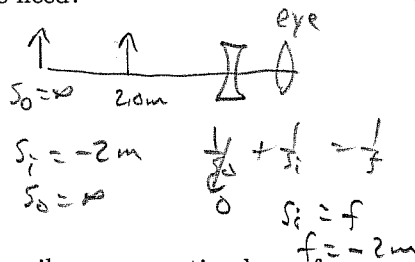 need?
eye
S₀ = ∞
2.0m
Sᵢ = -2m
S₀ = ∞
1/S₀ + 1/Sᵢ = 1/f
0
Sᵢ = f
f = -2m